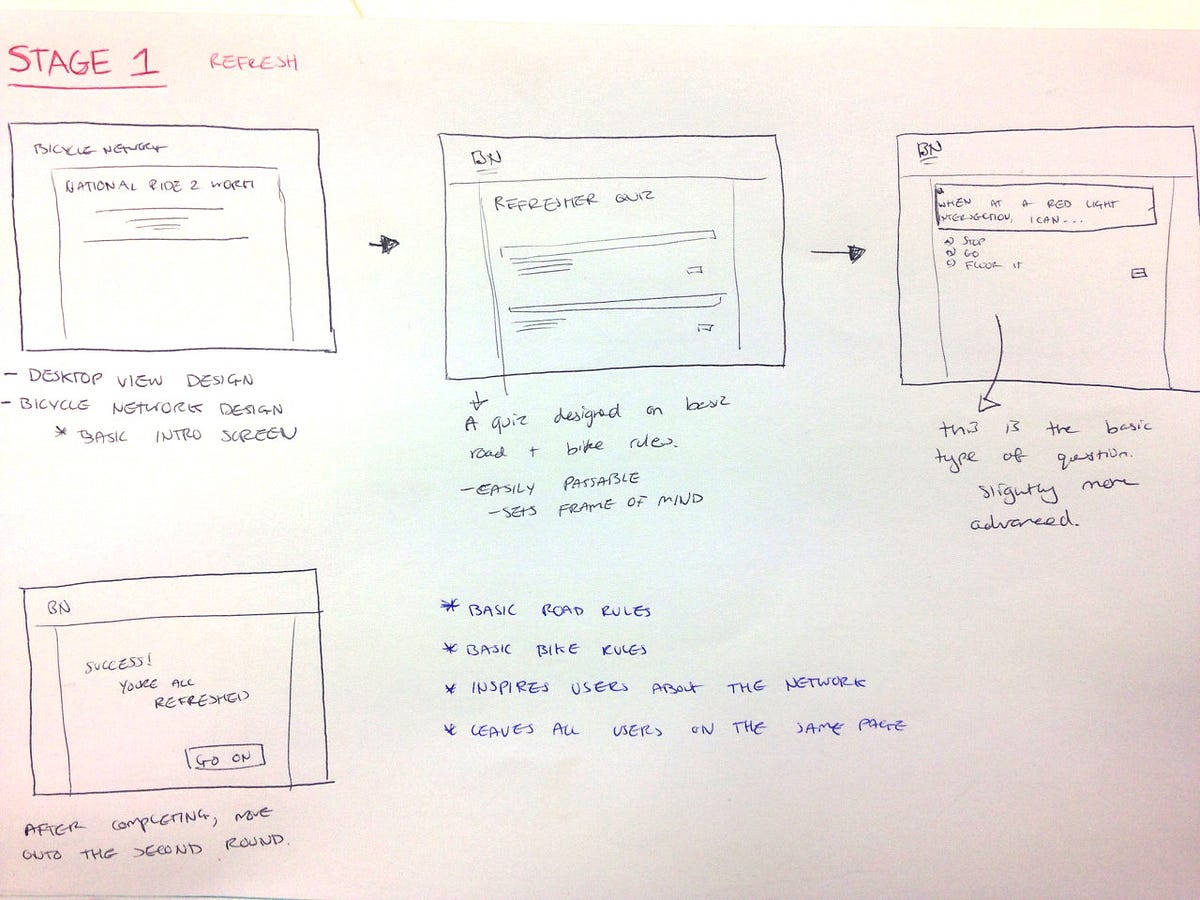 STAGE 1 REFRESH
BICYCLE NETWORK
NATIONAL RIDE 2 WORK
- DESKTOP VIEW DESIGN
- BICYCLE NETWORK DESIGN
* BASIC INTRO SCREEN
BN
REFRESHER QUIZ
A quiz designed on basic
road + bike rules.
- EASILY PASSABLE
- SETS FRAME OF MIND
BN
WHEN AT A RED LIGHT
INTERSECTION, I CAN...
A) STOP
B) GO
C) FLOOR IT
this is the basic
type of question.
slightly more
advanced.
BN
SUCCESS!
YOURE ALL
REFRESHED
GO ON
AFTER COMPLETING, MOVE
ONTO THE SECOND ROUND.
* BASIC ROAD RULES
* BASIC BIKE RULES
* INSPIRES USERS ABOUT THE NETWORK
* LEAVES ALL USERS ON THE SAME PAGE